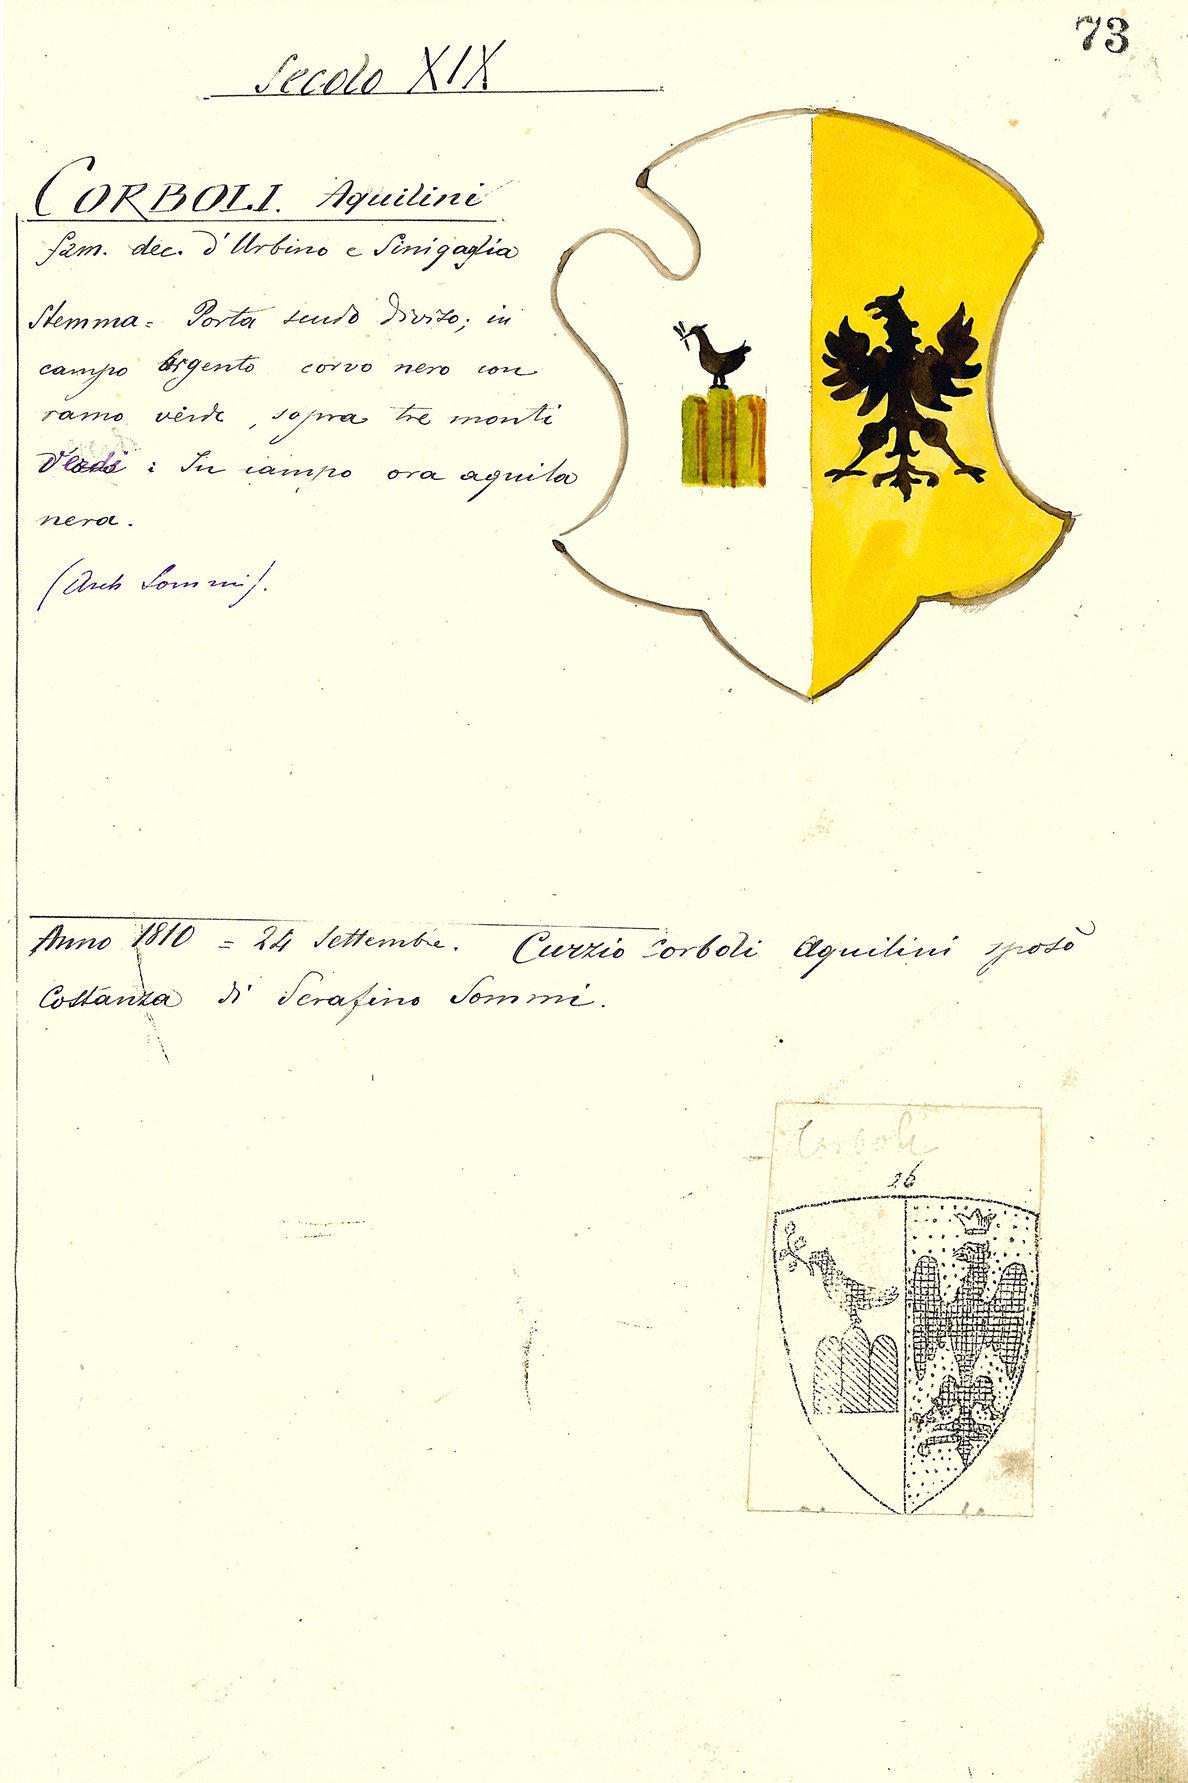 73
Secolo XIX
CORBOLI. Aquilini
fam. dec. d'Urbino e Sinigaglia
Stemma = Porta scudo diviso; in
campo Argento corvo nero con
ramo verde, sopra tre monti
Verdi : In campo ora aquila
nera.
(Arch Sommi).
Anno 1810 = 24 Settembre. Curzio Corboli Aquilini sposò
Costanza di Serafino Sommi.
Corboli
26